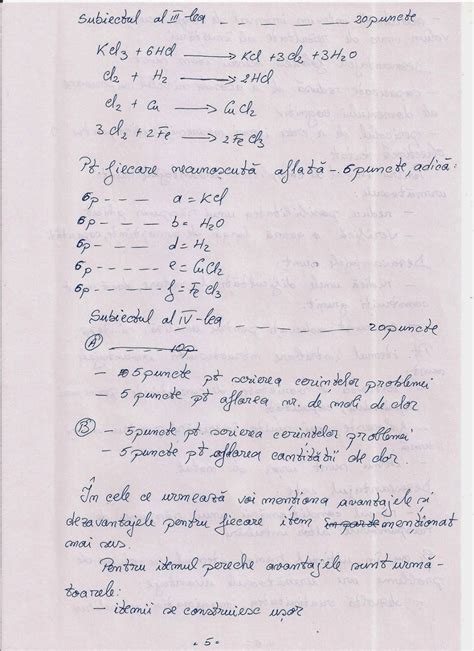 Subiectul al III-lea _ _ _ _ _ _ _ _ _ 20 puncte
KCl3 + 6HCl ⟶ KCl + 3Cl2 + 3H2O
Cl2 + H2 ⟶ 2HCl
Cl2 + Cu ⟶ CuCl2
3Cl2 + 2Fe ⟶ 2FeCl3
Pt. fiecare necunoscută aflată - 6 puncte, adică:
6p - - - - a = KCl
6p - - - - - b = H2O
6p - - - - - d = H2
6p - - - - - e = CuCl2
6p - - - - - f = FeCl3
Subiectul al IV-lea _ _ _ _ _ _ _ _ 20 puncte
A 10p
- 5 puncte pt scrierea cerințelor problemei
- 5 puncte pt aflarea nr. de moli de clor
B - 5 puncte pt scrierea cerințelor problemei
- 5 puncte pt aflarea cantității de clor.
În cele ce urmează voi menționa avantajele și
dezavantajele pentru fiecare item menționat
mai sus.
Pentru itemul pereche avantajele sunt urmă-
toarele:
- itemii se construiesc ușor
. 5 .